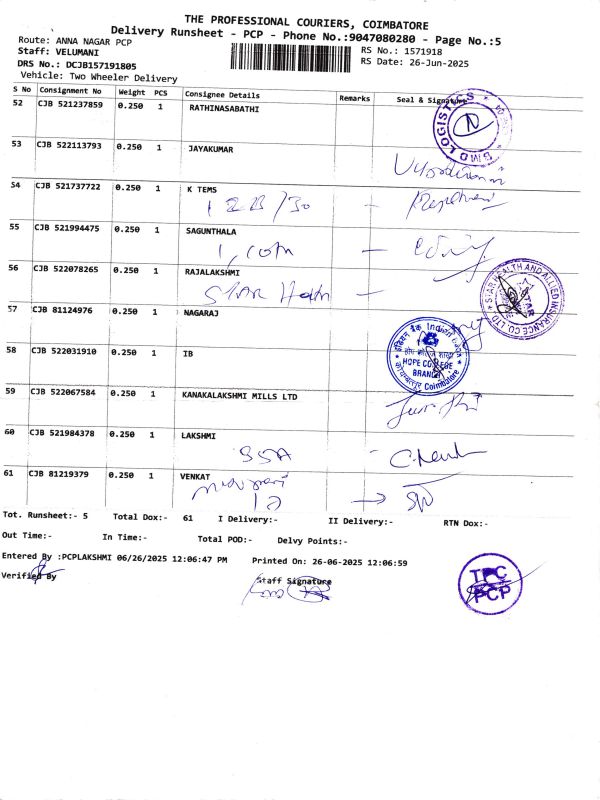 THE PROFESSIONAL COURIERS, COIMBATORE
Delivery Runsheet - PCP - Phone No.:9047080280 - Page No.:5
Route: ANNA NAGAR PCP
RS No.: 1571918
Staff: VELUMANI
RS Date: 26-Jun-2025
DRS No.: DCJB157191805
Vehicle: Two Wheeler Delivery
S No Consignment No Weight PCS Consignee Details Remarks Seal & Signature
52 CJB 521237859 0.250 1 RATHINASABATHI
BMD LOGISTICS
53 CJB 522113793 0.250 1 JAYAKUMAR
54 CJB 521737722 0.250 1 K TEMS
55 CJB 521994475 0.250 1 SAGUNTHALA
56 CJB 522078265 0.250 1 RAJALAKSHMI
STAR Health
STAR HEALTH AND ALLIED INSURANCE CO. LTD
57 CJB 81124976 0.250 1 NAGARAJ
58 CJB 522031910 0.250 1 IB
Indian Bank
HOPE COLLEGE
BRANCH
Coimbatore
59 CJB 522067584 0.250 1 KANAKALAKSHMI MILLS LTD
60 CJB 521984378 0.250 1 LAKSHMI
61 CJB 81219379 0.250 1 VENKAT
Tot. Runsheet:- 5 Total Dox:- 61 I Delivery:- II Delivery:- RTN Dox:-
Out Time:- In Time:- Total POD:- Delvy Points:-
Entered By :PCPLAKSHMI 06/26/2025 12:06:47 PM Printed On: 26-06-2025 12:06:59
Verified By Staff Signature
TPC
PCP